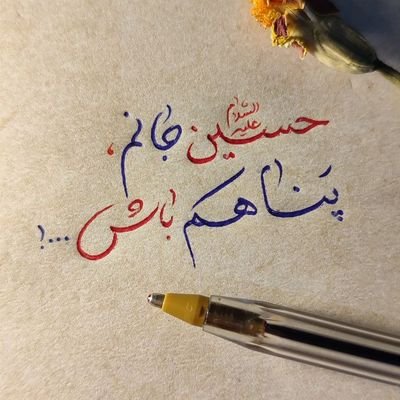 حسین علیه السلام جانم،
پناهم باش...!